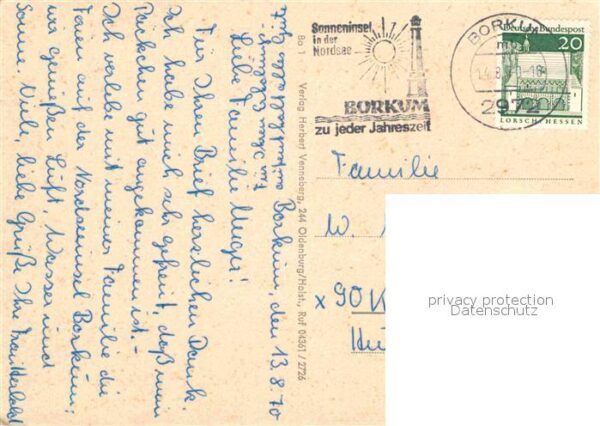 Borkum, den 13.8.70
Liebe Familie Unger!
Für Ihren Brief herzlichen Dank.
Ich habe mich sehr gefreut, daß mein
Päckchen gut angekommen ist.-
Ich verlebe mit meiner Familie die
Ferien auf der Nordseeinsel Borkum;
wir genießen Luft, Wasser und
Sonne. Viele, liebe Grüße Ihre
Bo 1 Verlag Herbert Venneberg, 244 Oldenburg/Holst., Ruf 04361 / 2726
Sonneninsel
in der
Nordsee
BORKUM
zu jeder Jahreszeit
BORKUM
2972
Deutsche Bundespost
20
LORSCH/HESSEN
Familie
W.
x 90 K
privacy protection
Datenschutz